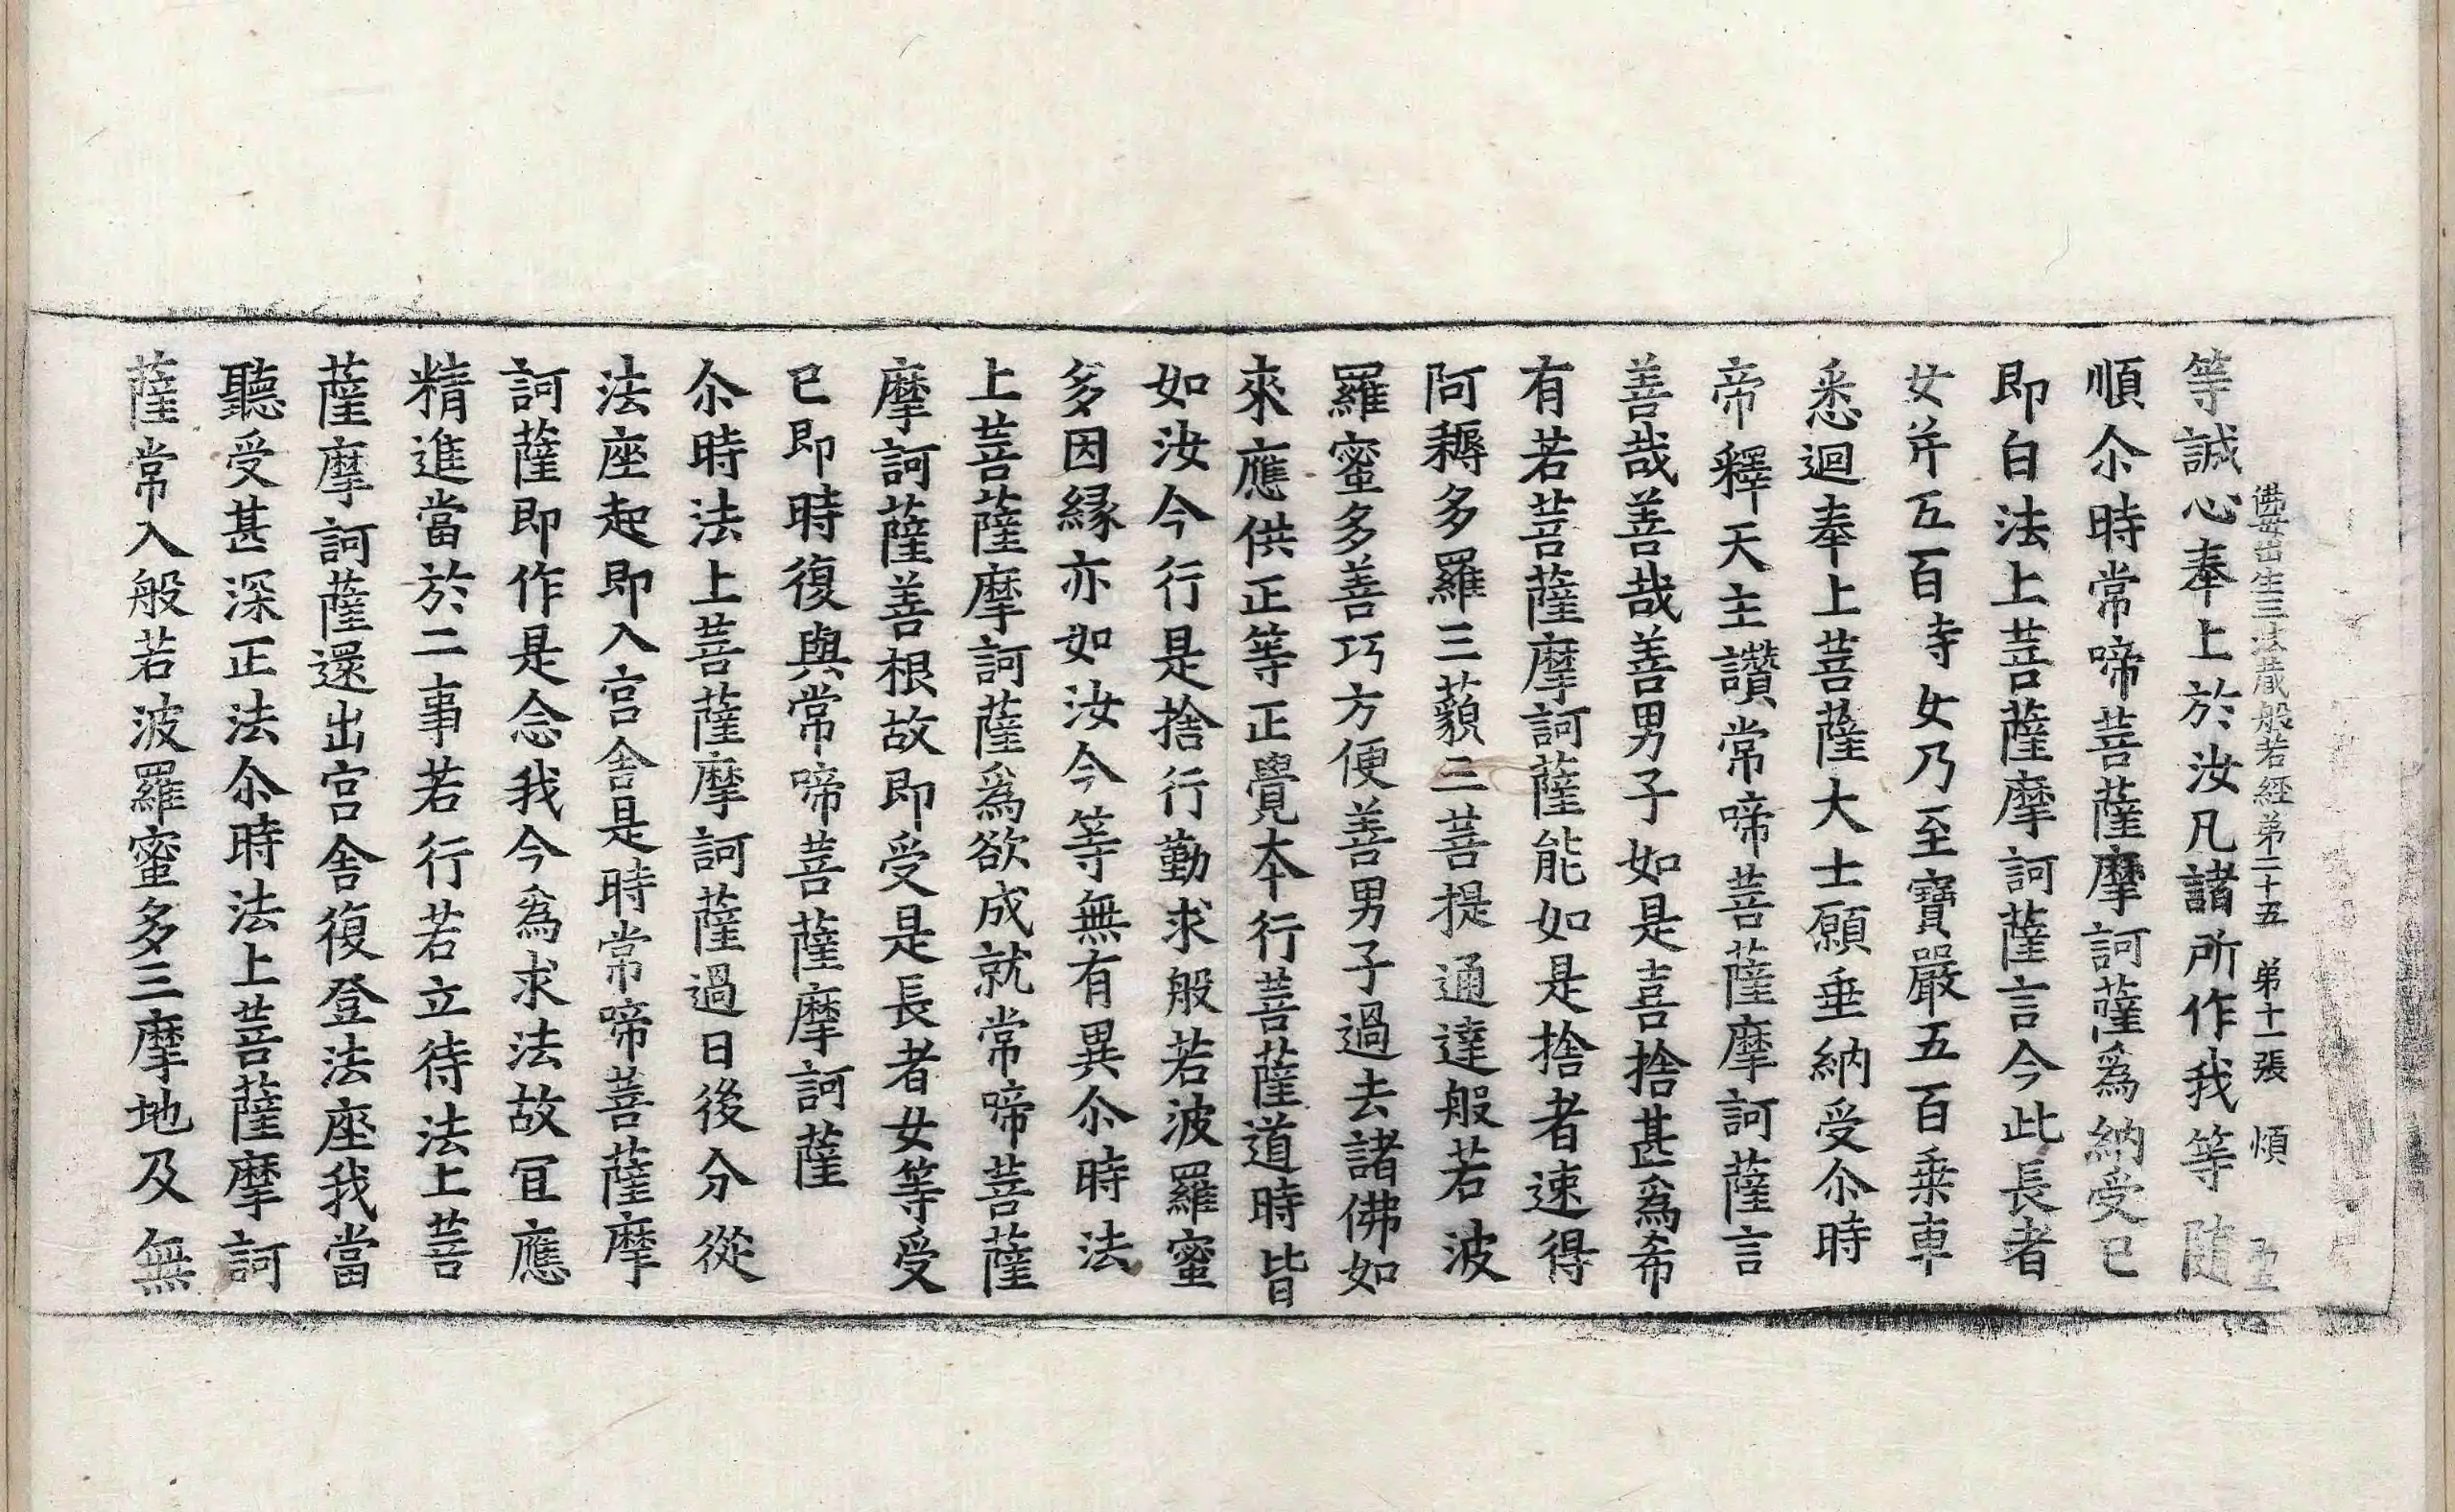 佛母出生三法藏般若經第二十五 第十一張 煩
等誠心奉上於汝凡諸所作我等隨
順尒時常啼菩薩摩訶薩爲納受已
即白法上菩薩摩訶薩言今此長者
女并五百侍女乃至寶嚴五百乗車
悉迴奉上菩薩大士願垂納受尒時
帝釋天主讚常啼菩薩摩訶薩言
善哉善哉善男子如是喜捨甚爲希
有若菩薩摩訶薩能如是捨者速得
阿耨多羅三藐三菩提通達般若波
羅蜜多善巧方便善男子過去諸佛如
來應供正等正覺夲行菩薩道時皆
如汝今行是捨行勤求般若波羅蜜
多因縁亦如汝今等無有異尒時法
上菩薩摩訶薩爲欲成就常啼菩薩
摩訶薩善根故即受是長者女等受
已即時復與常啼菩薩摩訶薩
尒時法上菩薩摩訶薩過日後分從
法座起即入宫舎是時常啼菩薩摩
訶薩即作是念我今爲求法故冝應
精進當於二事若行若立待法上菩
薩摩訶薩還出宫舎復登法座我當
聽受甚深正法尒時法上菩薩摩訶
薩常入般若波羅蜜多三摩地及無